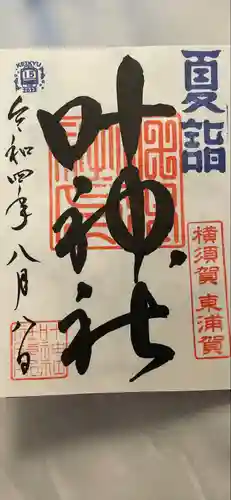 夏詣
横須賀 東浦賀
叶神社
令和四年八月八日
KEIKYU